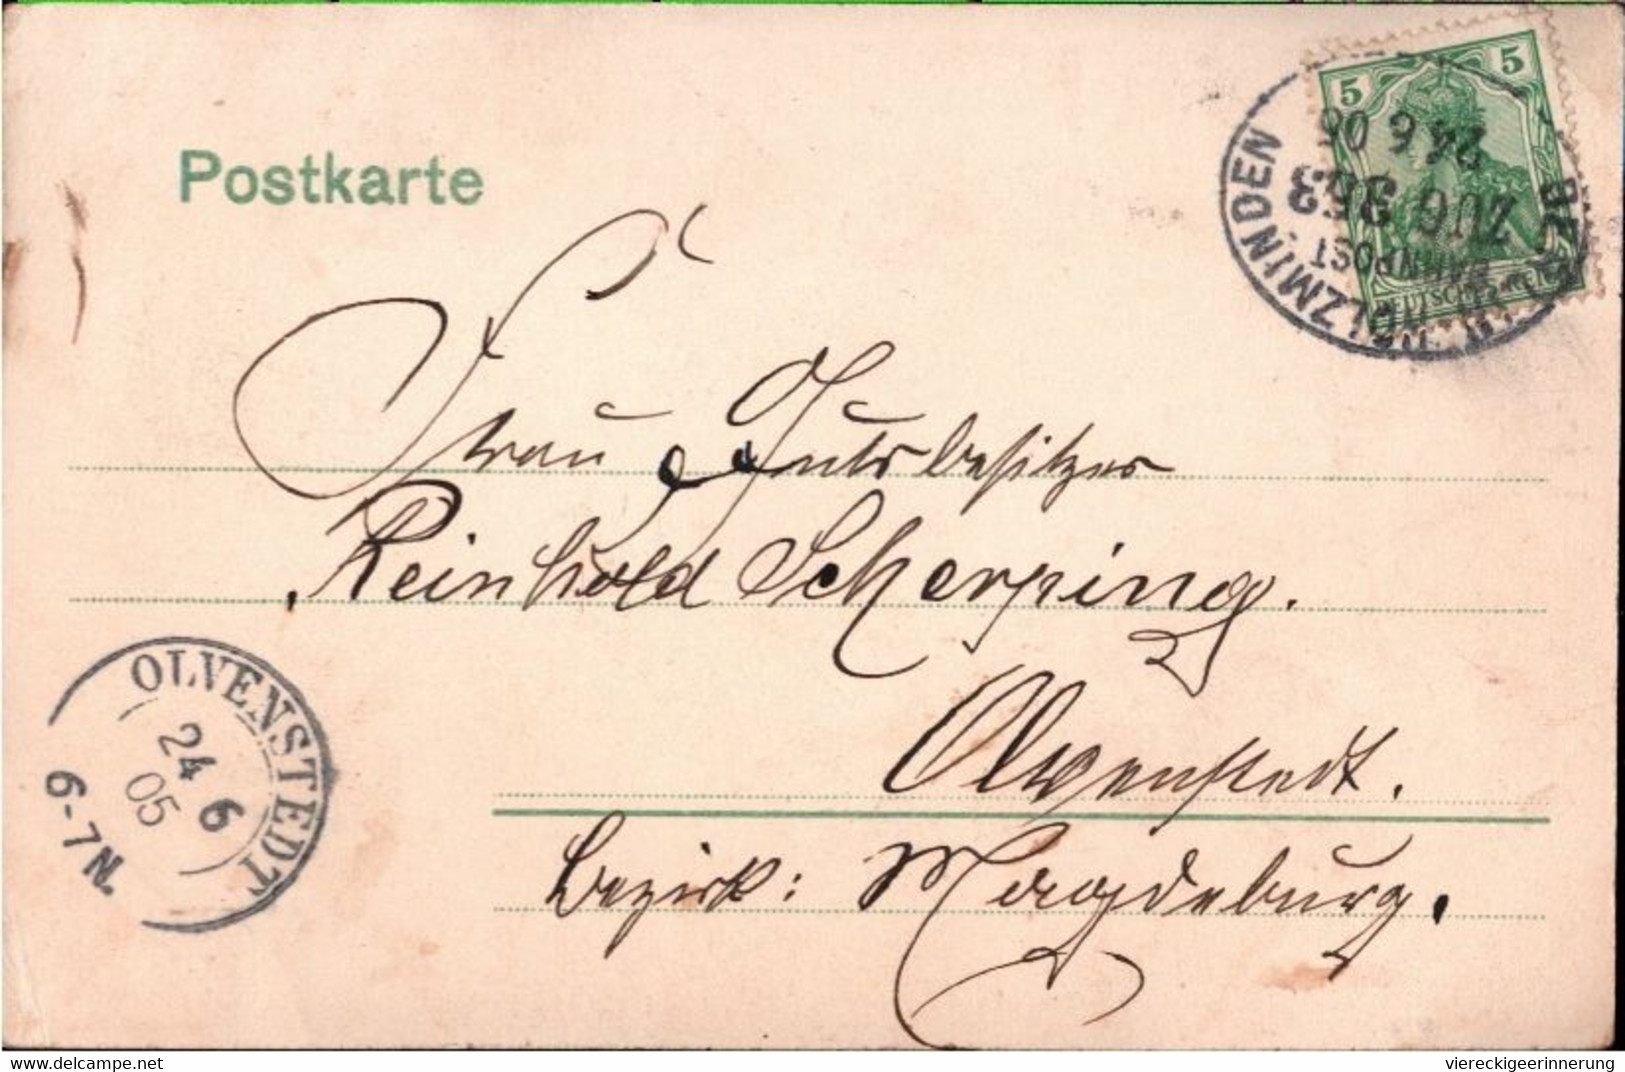 Postkarte
5 5
HOLZMINDEN
BAHNPOST
ZUG 353
24 6 05
Frau Gutsbesitzer
Reinhold Scherping.
Olvenstedt.
Bezirk: Magdeburg.
OLVENSTEDT
24 6
05
6-7N.
delcampe.net
viereckigeerinnerung